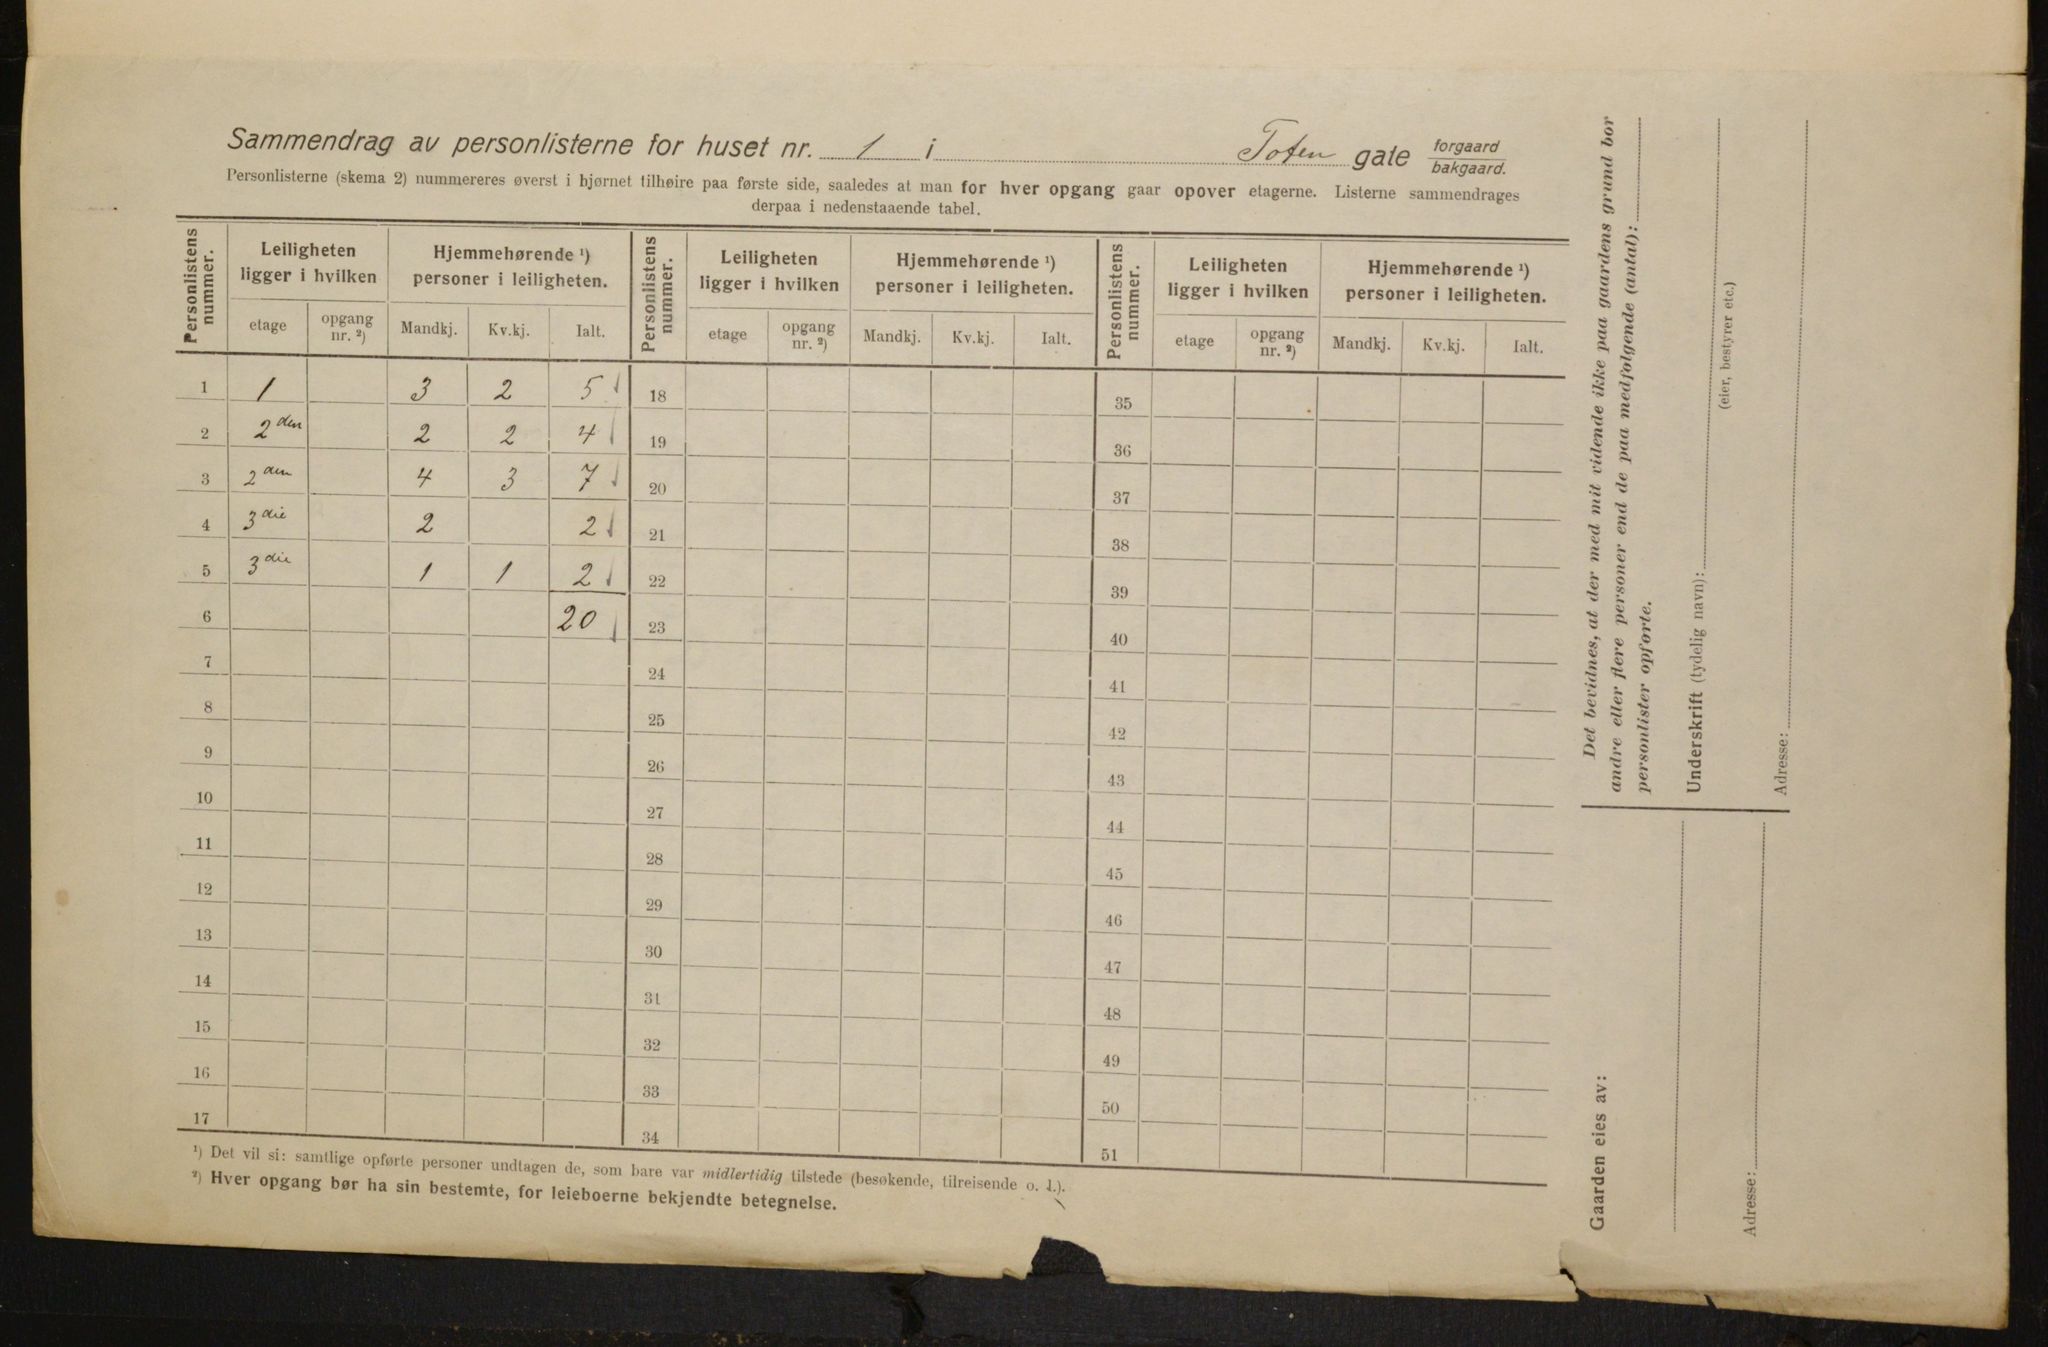 Sammendrag av personlisterne for huset nr. 1 i Toten gate forgaard bakgaard.
Personlisterne (skema 2) nummereres øverst i hjørnet tilhøire paa første side, saaledes at man for hver opgang gaar opover etagerne. Listerne sammendrages
derpaa i nedenstaaende tabel.
Personlistens nummer. Leiligheten ligger i hvilken Hjemmehørende ¹) personer i leiligheten. Personlistens nummer. Leiligheten ligger i hvilken Hjemmehørende ¹) personer i leiligheten. Personlistens nummer. Leiligheten ligger i hvilken Hjemmehørende ¹) personer i leiligheten.
etage opgang nr. ²) Mandkj. Kv.kj. Ialt. etage opgang nr. ²) Mandkj. Kv.kj. Ialt. etage opgang nr. ²) Mandkj. Kv.kj. Ialt.
1 1 3 2 5 18 35
2 2den 2 2 4 19 36
3 2den 4 3 7 20 37
4 3die 2 2 21 38
5 3die 1 1 2 22 39
6 20 23 40
7 24 41
8 25 42
9 26 43
10 27 44
11 28 45
12 29 46
13 30 47
14 31 48
15 32 49
16 33 50
17 34 51
¹) Det vil si: samtlige opførte personer undtagen de, som bare var midlertidig tilstede (besøkende, tilreisende o. l.).
²) Hver opgang bør ha sin bestemte, for leieboerne bekjendte betegnelse.
Det bevidnes, at der med mit vidende ikke paa gaardens grund bor
andre eller flere personer end de paa medfølgende (antal):
personlister opførte.
Underskrift (tydelig navn):
(eier, bestyrer etc.)
Adresse:
Gaarden eies av:
Adresse: